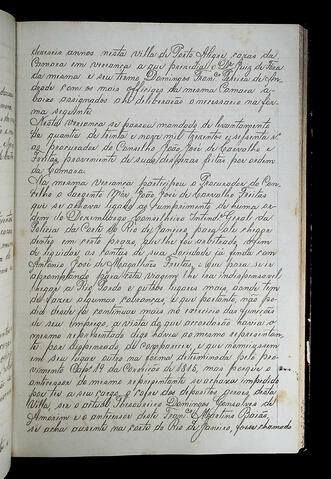 dezoito annos nesta Villa de Porto Alegre cazas da
Camara em vereança a que prezidia o Dr. Juiz de Fora
da mesma e seu termo Domingos Franco Pereira de An
drade com os mais officiaes da mesma Camara a-
baixo assignados ahi deliberarão o necessario na for
ma seguinte.
Nesta vereança se passou mandado de levantamento
da quantia de trinta e nove mil trezentos e setenta rs
ao procurador do Conselho João José de Carvalho e
Freitas proveniente de suas dispezas feitas por ordem
da Camara.
Na mesma vereança participou o Procurador do Con
selho o sargento Mór João José de Carvalho Freitas
que se achava ligado ao cumprimento de huma or-
dem do Dezembargo Conselheiro Intende Geral da
Policia da Corte do Rio de Janeiro para ali chegar
dentro em certo prazo, que lhe foi arbitrado afim
de liquidar as contas de sua sociedade já finda com
Antonio José de Magalhães Freitas, e que para se ir
apromptando para esta viagem lhe era indispensavel
chegar a Rio Pardo e outros lugares mais aonde tem
de fazer algumas cobranças, e que portanto, não po-
dia desde já continuar mais no exercicio das funções
de seu emprego, a vista do que accordarão haver o
mesmo representado digo haver ao mesmo representan
te por dispensado de comparecer, e que nomeassem
em seu lugar outro na forma determinada pelo pro
vimento Capo 19 da Correição de 1815, mas porque o
antecessor do mesmo representante se achava impedido
por ter a seu cargo o cofre dos depositos geraes desta
Villa, ser o actual Thesoureiro Domingos Gonsalves de
Amorim e o antecessor deste Franco Martins Baião,
se acha auzente na corte do Rio de Janeiro, fosse chamado